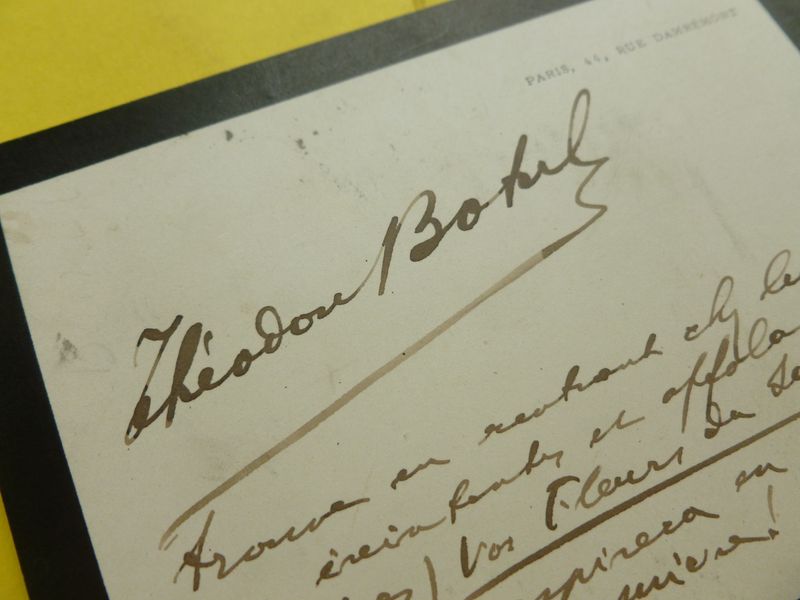 PARIS, 44, RUE DAMRÉMONT
Théodore Botrel
trouve en rentrant chez
éreintantes et affola
) vos Fleurs du
spirera en